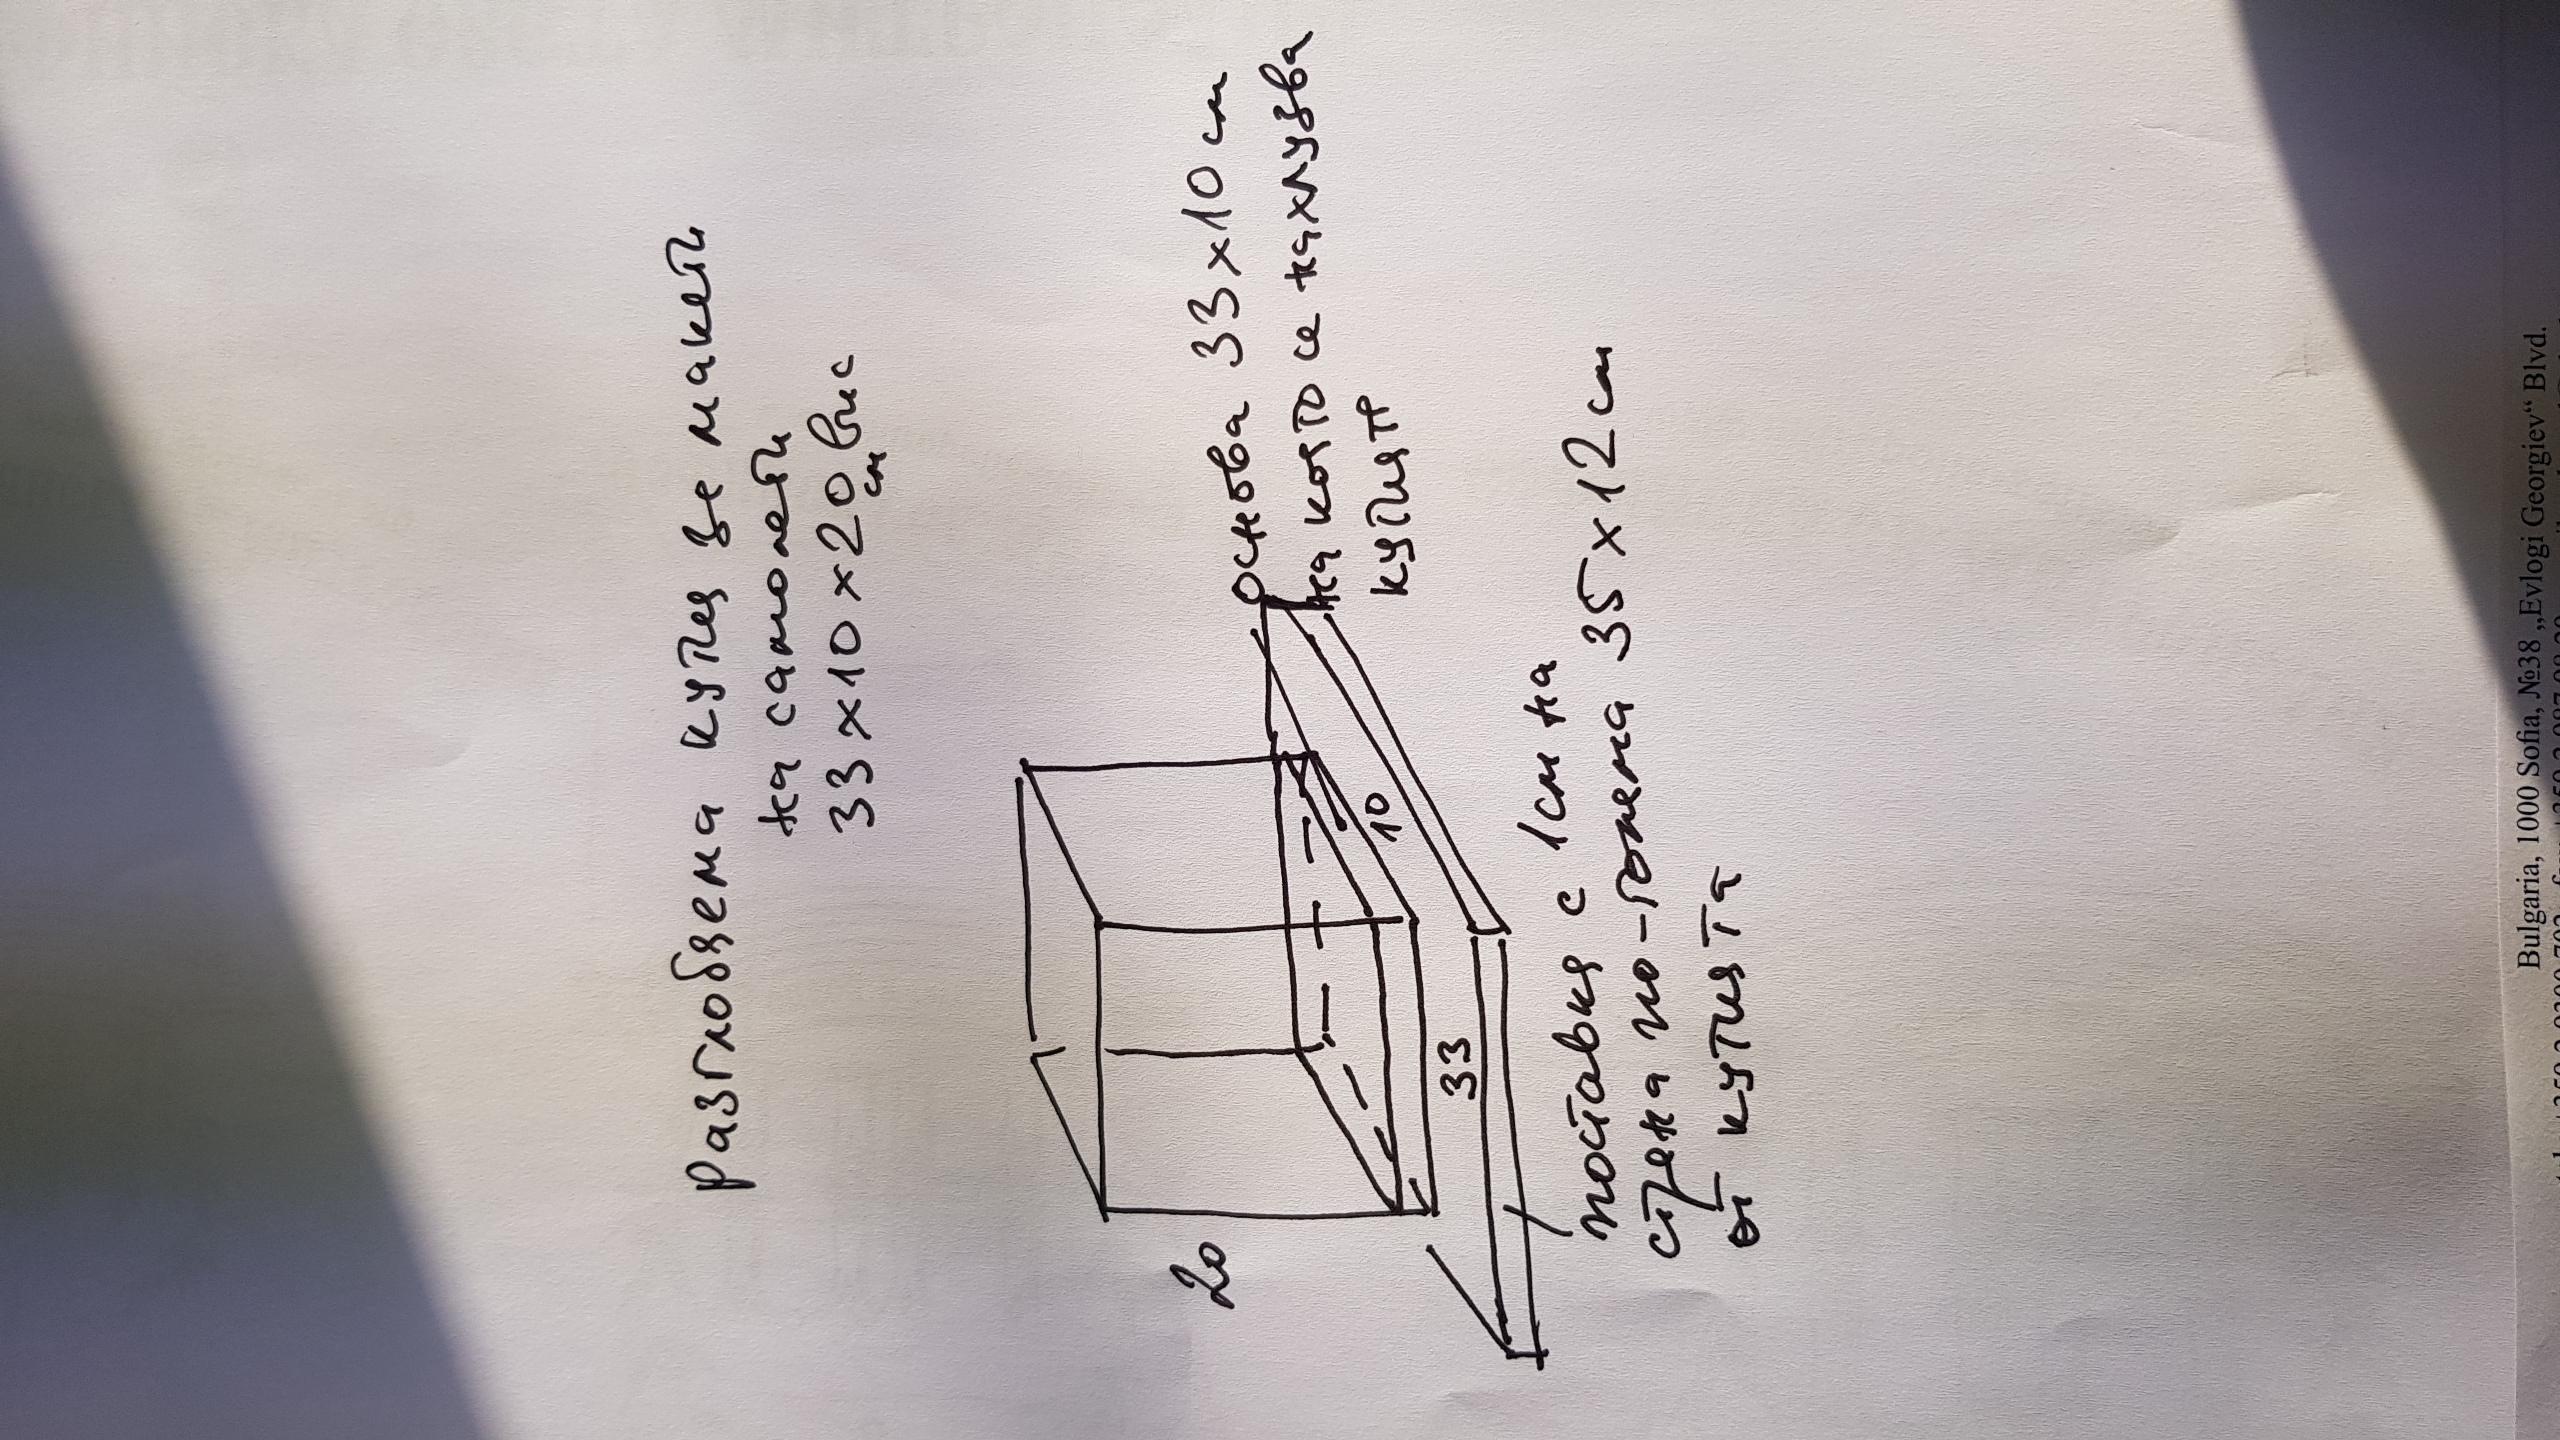 разглобяема кутия за макети
на самолети
33 x 10 x 20 вис
см
20
основа 33 x 10 см
на която се нахлузва
кутията
10
33
поставка с 1см на
стена по-голяма 35 x 12 см
от кутията
Bulgaria, 1000 Sofia, №38 „Evlogi Georgiev“ Blvd.